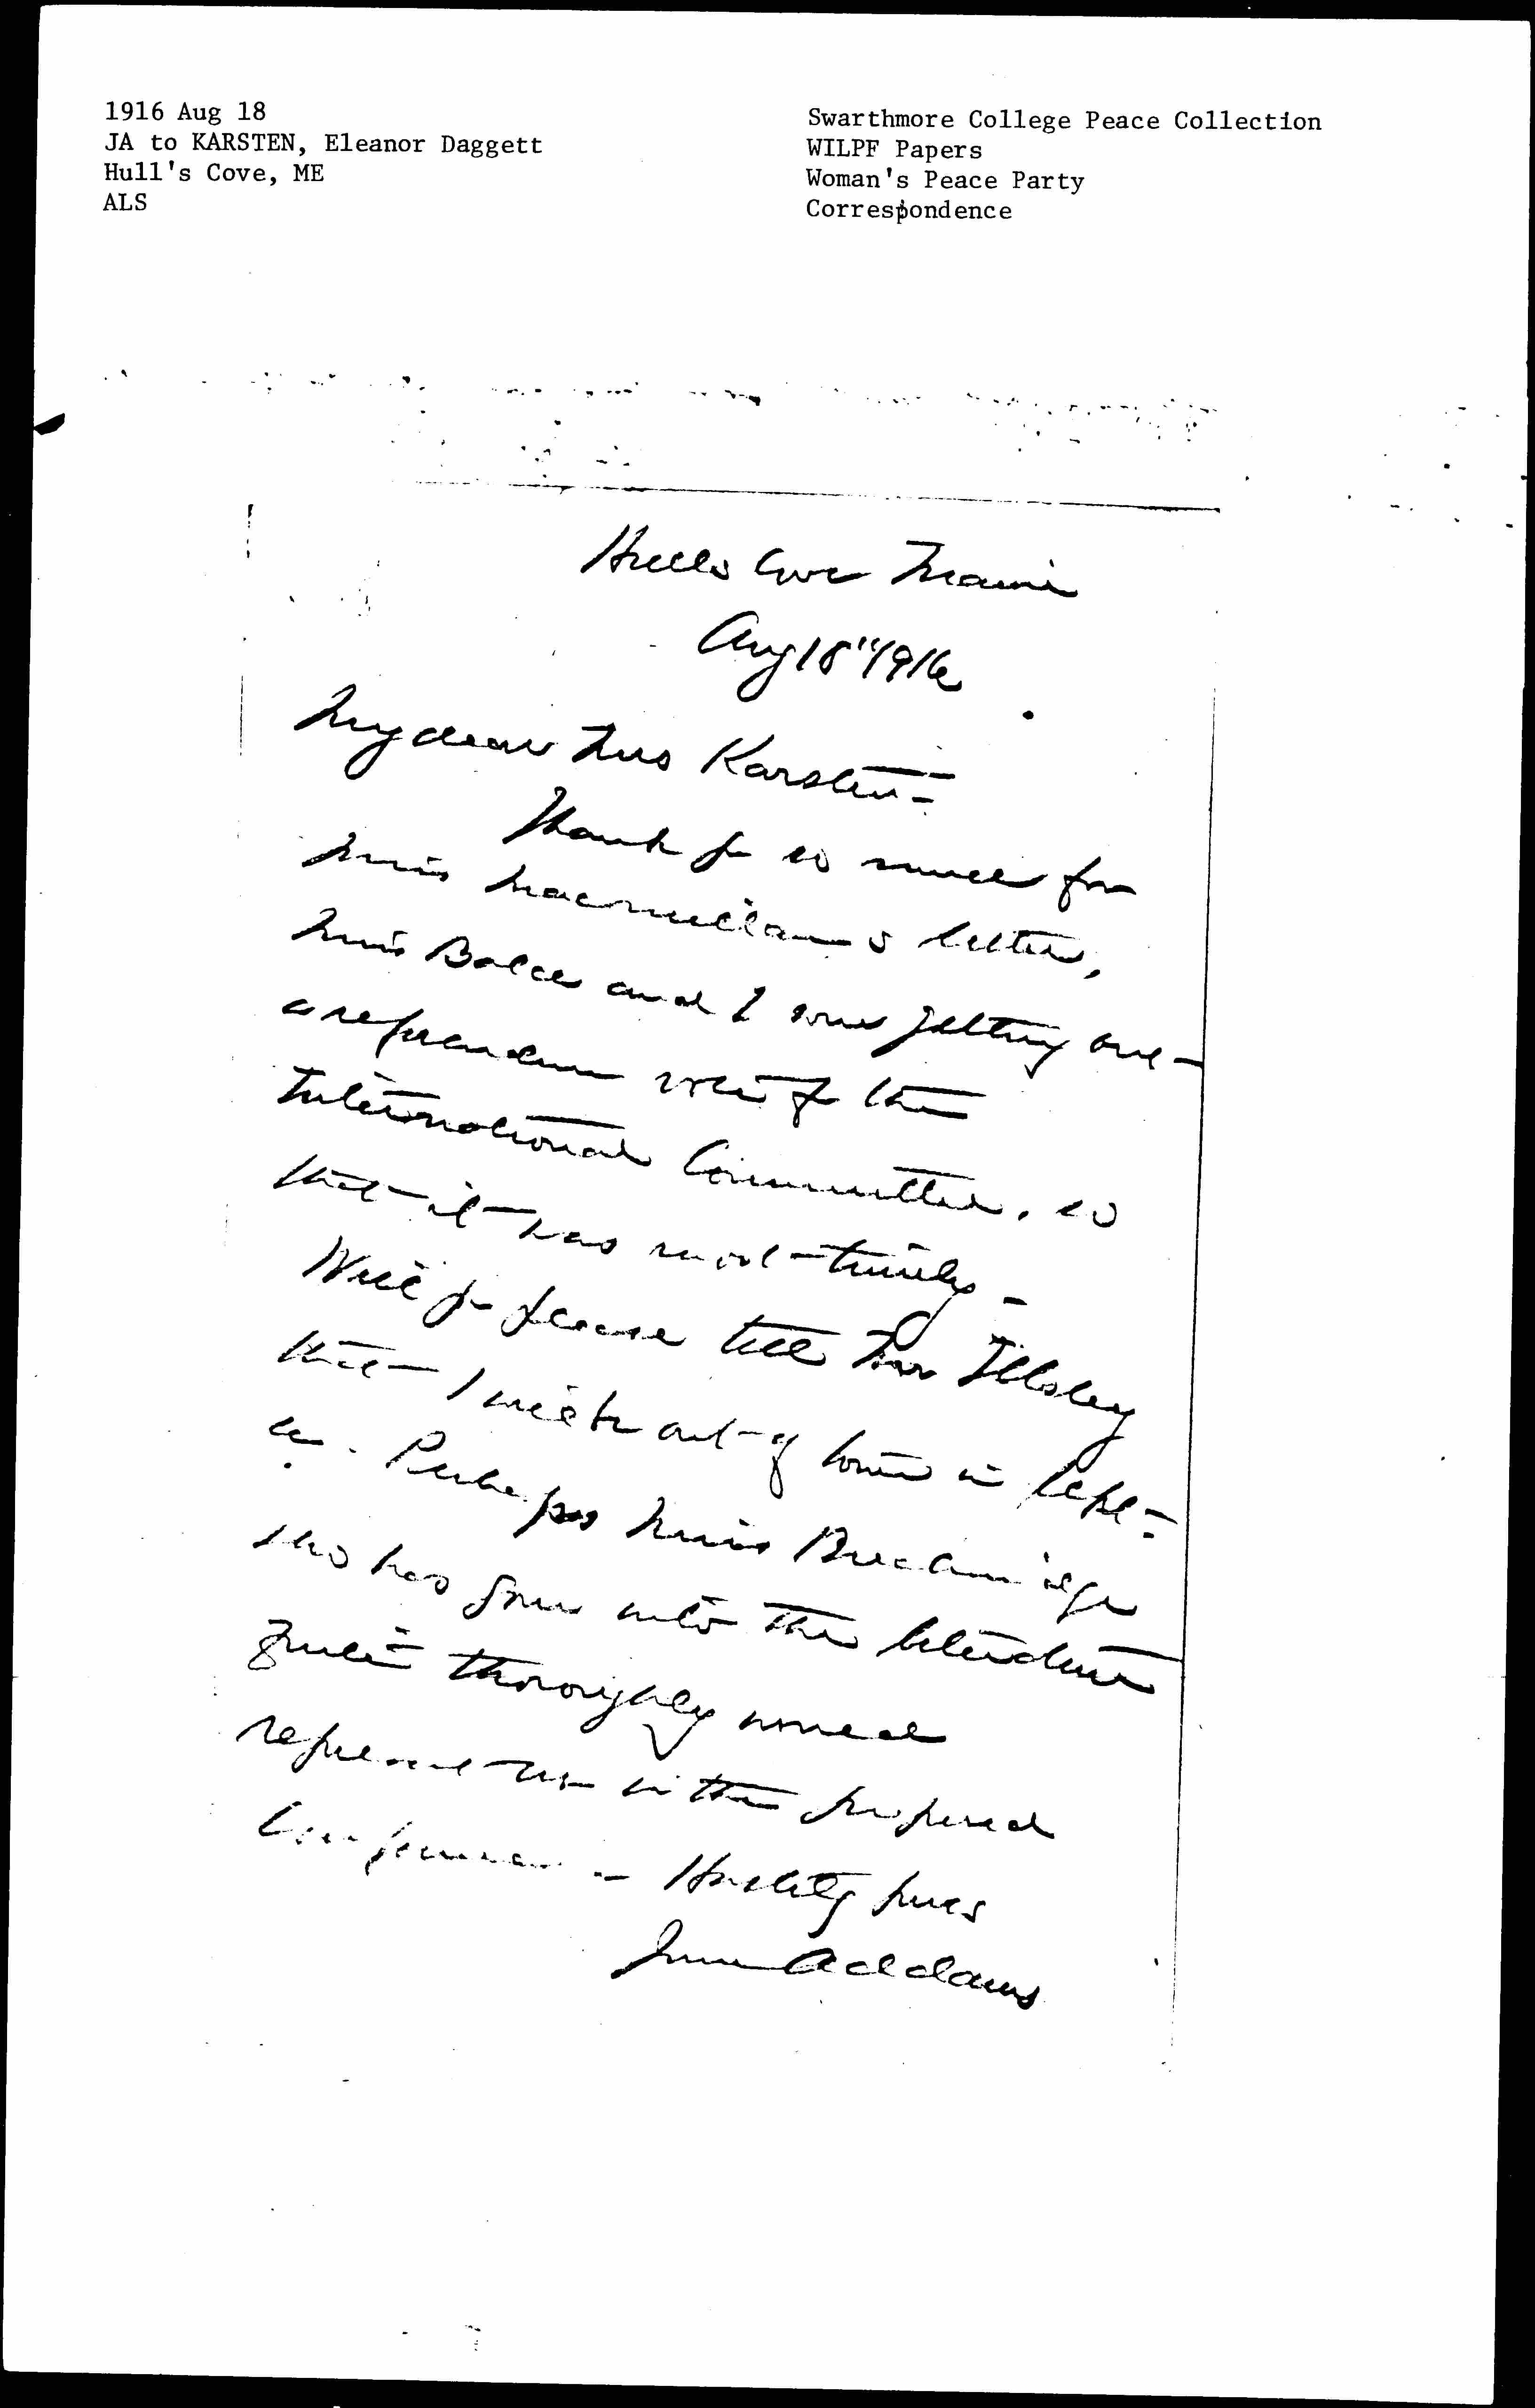 1916 Aug 18
JA to KARSTEN, Eleanor Daggett
Hull's Cove, ME
ALS
Swarthmore College Peace Collection
WILPF Papers
Woman's Peace Party
Correspondence
Hulls Cove Maine
Aug 18" 1916
My dear Mrs Karsten -
Thank you so much for
Miss Macmillan's letter,
Miss Balch and I were getting out
a referendum vote to the
International Committee, so
that it was most timely -
Will you please tell Mrs Illsley
that I will be out of town in Sept -
Perhaps Miss Breckinridge
who has gone into the literature
quite thoroughly would
represent us in the proposed
Conference - Hastily yours
Jane Addams